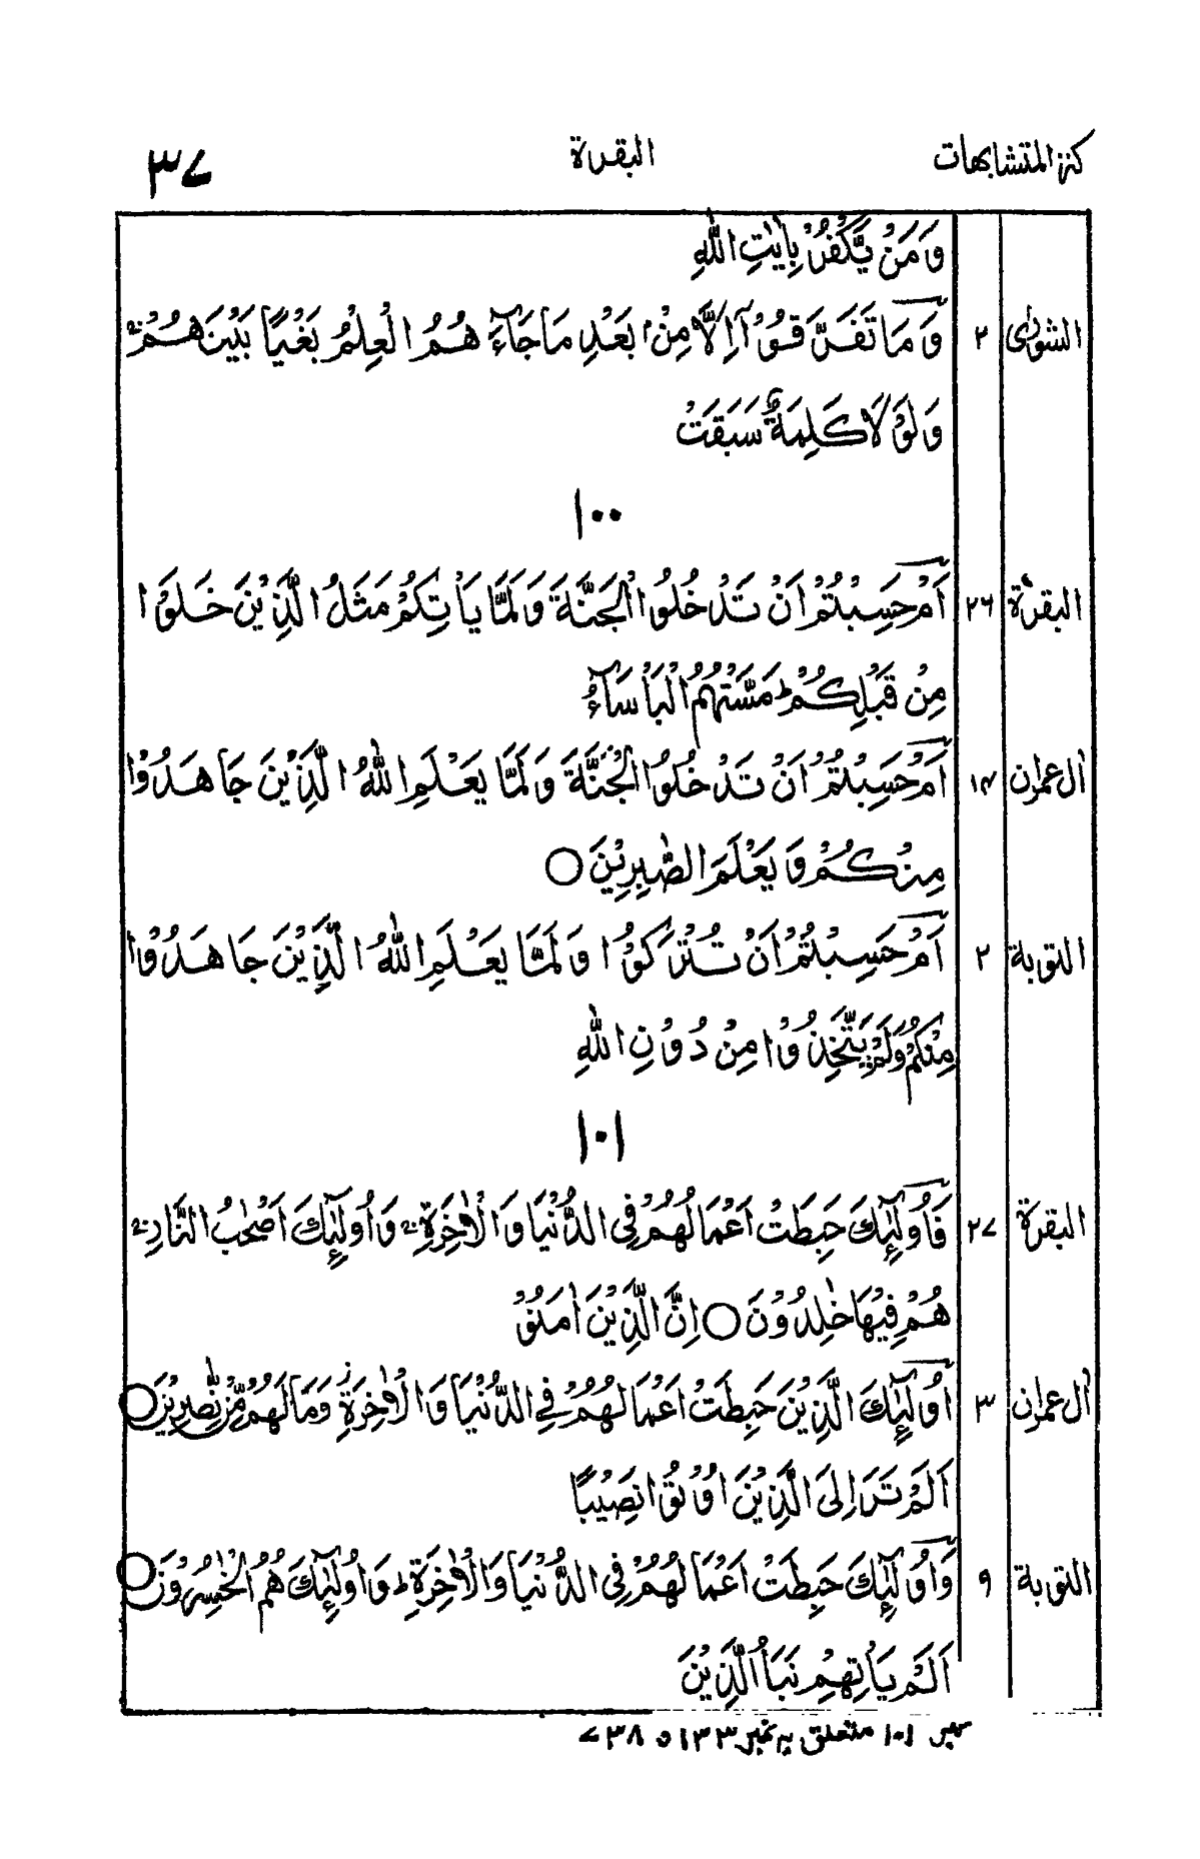 كنز المتشابهات البقرة ٣٧
وَمَنْ يَّكْفُرْ بِاٰيٰتِ اللّٰهِ
الشورٰى ٢ وَمَا تَفَرَّقُوْۤا اِلَّا مِنْۢ بَعْدِ مَا جَآءَهُمُ الْعِلْمُ بَغْيًاۢ بَيْنَهُمْ ؕ
وَلَوْلَا كَلِمَةٌ سَبَقَتْ
١٠٠
البقرة ٢٦ اَمْ حَسِبْتُمْ اَنْ تَدْخُلُوا الْجَنَّةَ وَلَمَّا يَاْتِكُمْ مَثَلُ الَّذِيْنَ خَلَوْا
مِنْ قَبْلِكُمْ ؕ مَسَّتْهُمُ الْبَاْسَآءُ
اٰل عمرٰن ١٤ اَمْ حَسِبْتُمْ اَنْ تَدْخُلُوا الْجَنَّةَ وَلَمَّا يَعْلَمِ اللّٰهُ الَّذِيْنَ جَاهَدُوْا
مِنْكُمْ وَيَعْلَمَ الصّٰبِرِيْنَ ○
التوبة ٢ اَمْ حَسِبْتُمْ اَنْ تُتْرَكُوْا وَلَمَّا يَعْلَمِ اللّٰهُ الَّذِيْنَ جَاهَدُوْا
مِنْكُمْ وَلَمْ يَتَّخِذُوْا مِنْ دُوْنِ اللّٰهِ
١٠١
البقرة ٢٧ فَاُولٰٓئِكَ حَبِطَتْ اَعْمَالُهُمْ فِي الدُّنْيَا وَالْاٰخِرَةِ ۚ وَاُولٰٓئِكَ اَصْحٰبُ النَّارِ ۚ
هُمْ فِيْهَا خٰلِدُوْنَ ○ اِنَّ الَّذِيْنَ اٰمَنُوْ
اٰل عمرٰن ٣ اُولٰٓئِكَ الَّذِيْنَ حَبِطَتْ اَعْمَالُهُمْ فِي الدُّنْيَا وَالْاٰخِرَةِ ۫ وَمَا لَهُمْ مِّنْ نّٰصِرِيْنَ ○
اَلَمْ تَرَ اِلَى الَّذِيْنَ اُوْتُوْا نَصِيْبًا
التوبة ٩ وَاُولٰٓئِكَ حَبِطَتْ اَعْمَالُهُمْ فِي الدُّنْيَا وَالْاٰخِرَةِ ؕ وَاُولٰٓئِكَ هُمُ الْخٰسِرُوْنَ ○
اَلَمْ يَاْتِهِمْ نَبَاُ الَّذِيْنَ
نمبر ١٠١ متعلق بہ نمبر ١٣٣ و ٧٣٨